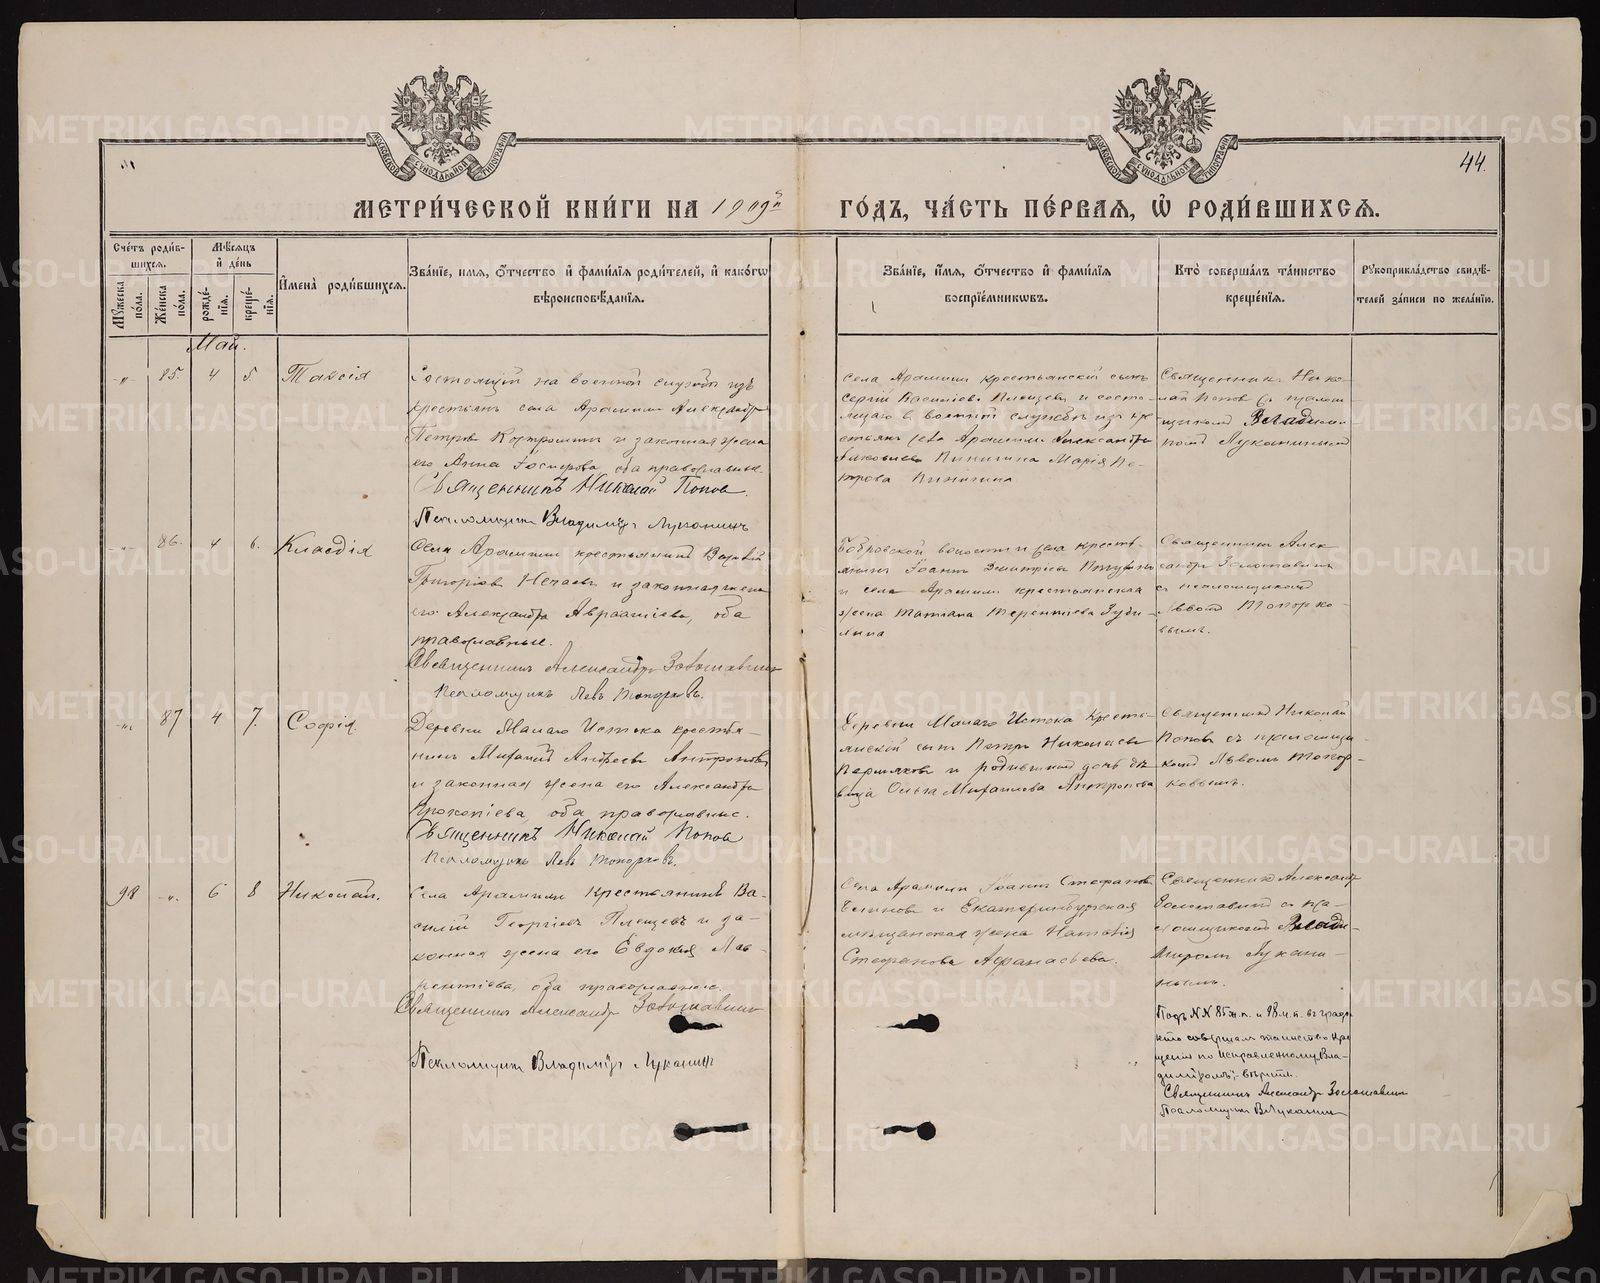 МЕТРИ́ЧЕСКОЙ КНИ́ГИ НА 1909й ГО́ДЪ, ЧА́СТЬ ПЕ́РВАЯ, Ѽ РОДИ́ВШИХСЯ.
44.
МОСКОВСКОЙ СУНОДАЛЬНОЙ ТИПОГРАФІИ
МОСКОВСКОЙ СУНОДАЛЬНОЙ ТИПОГРАФІИ
Сче́тъ роди́в-
шихся.
Мꙋжеска по́ла.
Же́нска по́ла.
Мѣ́сяцъ
и҆ де́нь
рожде́-
нїя.
креще́-
нїя.
И҆мена̀ роди́вшихся.
Зва́нїе, имя, ѻ҆́тчество и҆ фами́лїя роди́телей, и҆ како́гѡ
вѣроисповѣ́данїя.
Зва́нїе, и҆́мя, ѻ҆́тчество и҆ фами́лїя
воспрїе́мникѡвъ.
Кто̀ соверша́лъ та́инство
креще́нїя.
Рꙋкоприкла́дство свидѣ́-
телей за́писи по жела́нїю.
Май.
-„- 85. 4 5. Таисія
Состоящій на военной службѣ изъ
крестьянъ села Арамили Александръ
Петровъ Костромин и законная жена
его Анна, оба православные.
Священникъ Николай Попов.
Псаломщик Владиміръ Луканинъ
Села Арамили крестьянскій сынъ
Сергій Василіевъ Плещевъ и состо-
ящаго в военной службѣ из кре-
стьян села Арамили Александра
Яковлева Пинигина Марія Пе-
трова Пинигина
Священник Нико-
лай Попов съ псалом-
щикомъ Влади-
Луканинымъ
-„- 86. 4 6. Клавдія
Села Арамили крестьянинъ
Григоріев Нечаевъ и законная жена
его Александра Авраамиева, оба
православные.
Священникъ Александръ Золотавинъ
Псаломщикъ Левъ Топорковъ.
Бобровской волости и села кресть-
янинъ Іоаннъ Димитріевъ
и села Арамили крестьянская
жена Татіана Терентіева Зуби-
лина
Священник Алек-
сандръ Золотавинъ
с псаломщикомъ
Львомъ Топорко-
вымъ.
-„- 87 4 7. Софія
Деревни Малаго Истока крестья-
нинъ Михаилъ Андреев Антропов
и законная жена его Александра
Прокопіева, оба православные.
Священникъ Николай Попов
Псаломщикъ Левъ Топорковъ.
Деревни Малаго Истока Кресть-
янскій сын Петръ Николаев
Первяков и родившихъ дочь дѣ-
вица Ольга Михаилова Антропова
Священникъ Николай
Поповъ съ псаломщи-
комъ Львомъ Топор-
ковымъ.
98 -„- 6 8 Николай.
Села Арамили Крестьянинъ Ва-
силій Георгіевъ Плещевъ и за-
конная жена его Евдокія Лав-
рентіева, оба православные.
Священникъ Александръ Золотавинъ
Псаломщик Владиміръ Луканинъ
Села Арамили Іоаннъ Стефанов
и Екатеринбургская
мѣщанская жена Наталія
Стефанова Афанасьева.
Священникъ Александръ
Золотавинъ с пса-
ломщикомъ Влади-
міромъ Лукани-
нымъ.
Подъ NN 85 ж.п. и 98 м.п. въ графѣ
кто совершалъ таинство кре-
щенія по исправленному „Вла-
диміромъ“, вѣрить.
Священникъ Александръ Золотавинъ
Псаломщикъ В Луканин